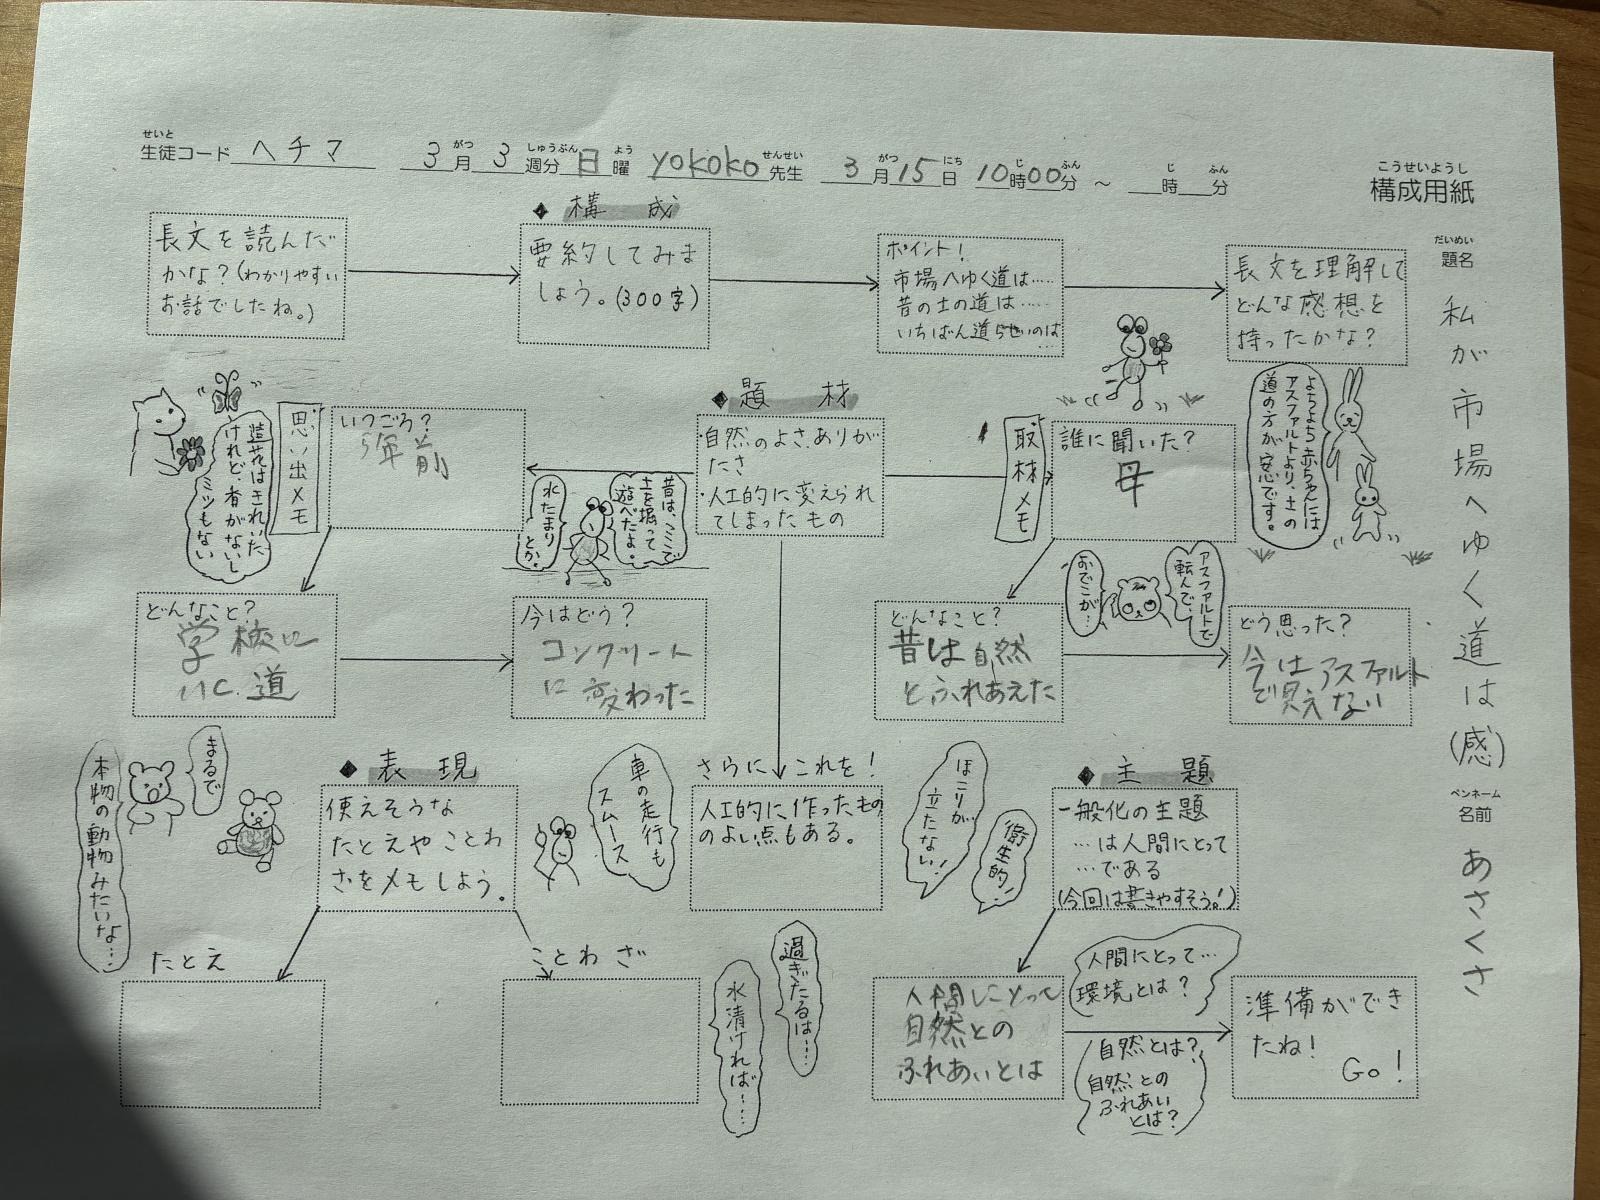 せいと
生徒コード ヘチマ 3月 3週分 日曜 yokoko先生 3月15日 10時00分 ～ 時 分
がつ しゅうぶん よう せんせい がつ にち じ ふん じ ふん
こうせいようし
構成用紙
だいめい
題名
私が市場へゆく道は(感)
ペンネーム
名前
あさくさ
◆構成
長文を読んだ
かな?(わかりやすい
お話でしたね。)
要約してみま
しょう。(300字)
ポイント!
市場へゆく道は……
昔の土の道は……
いちばん道らせいのは…
長文を理解して
どんな感想を
持ったかな?
よちよち赤ちゃんには
アスファルトより、土の
道の方が安心です。
◆題材
・自然のよさ、ありが
たさ
・人工的に変えられ
てしまったもの
思い出メモ
いつごろ?
5年前
造花はきれいだ
けれど、香がないし
ミツもない
昔は、ここで
土を掘って
遊べたよ。
水たまり
とか。
取材メモ
誰に聞いた?
母
どんなこと?
学校に
いく道
今はどう?
コンクリート
に変わった
どんなこと?
昔は自然
とふれあえた
アスファルトで
転んで…
おでこが…
どう思った?
今はアスファルト
で見えない
◆表現
使えそうな
たとえやことわ
ざをメモしよう。
まるで
本物の動物みたいな…
たとえ
ことわざ
さらにこれを!
人工的に作ったもの
のよい点もある。
車の走行も
スムース
ほこりが
立たない!
衛生的!
過ぎたるは……
水清ければ……
◆主題
一般化の主題
…は人間にとって
…である
(今回は書きやすそう!)
人間にとって
自然との
ふれあいとは
人間にとって…
環境とは?
自然とは?
自然との
ふれあい
とは?
準備ができ
たね!
Go!